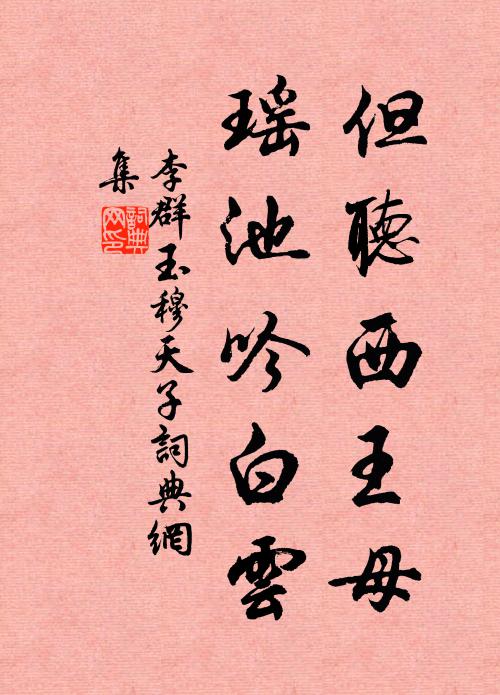 但聽西王母
瑤池吟白雲
李群玉穆天子詞典網
集
詞典
网印